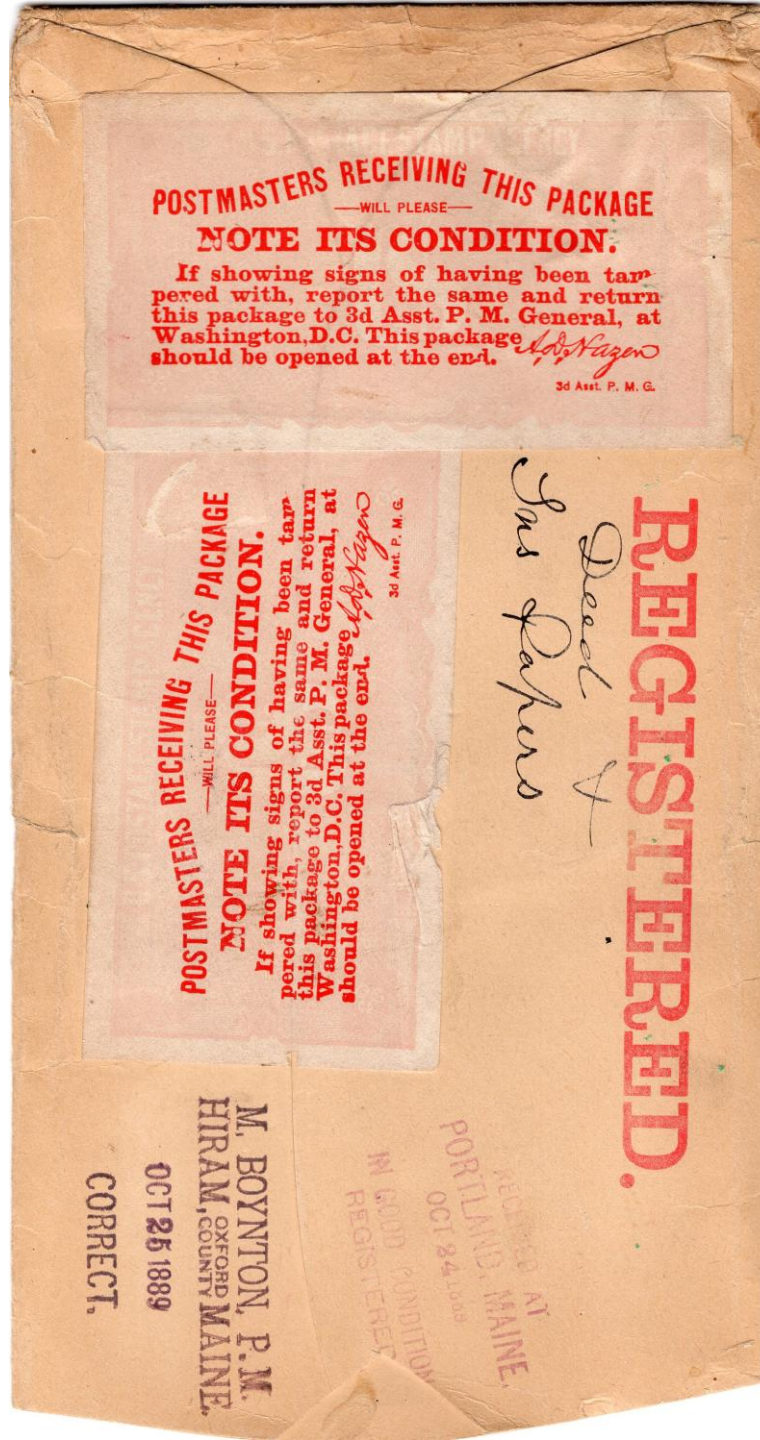 POSTMASTERS RECEIVING THIS PACKAGE
—WILL PLEASE—
NOTE ITS CONDITION.
If showing signs of having been tam-
pered with, report the same and return
this package to 3d Asst. P. M. General, at
Washington, D.C. This package
should be opened at the end.
A.D. Hazen
3d Asst. P. M. G.
REGISTERED.
Deed &
Ins Papers
POSTMASTERS RECEIVING THIS PACKAGE
—WILL PLEASE—
NOTE ITS CONDITION.
If showing signs of having been tam-
pered with, report the same and return
this package to 3d Asst. P. M. General, at
Washington, D.C. This package
should be opened at the end.
A.D. Hazen
3d Asst. P. M. G.
RECEIVED AT
PORTLAND, MAINE.
OCT 24 1889
IN GOOD CONDITION
REGISTERED
M. BOYNTON, P. M.
HIRAM, OXFORD COUNTY MAINE.
OCT 25 1889
CORRECT.